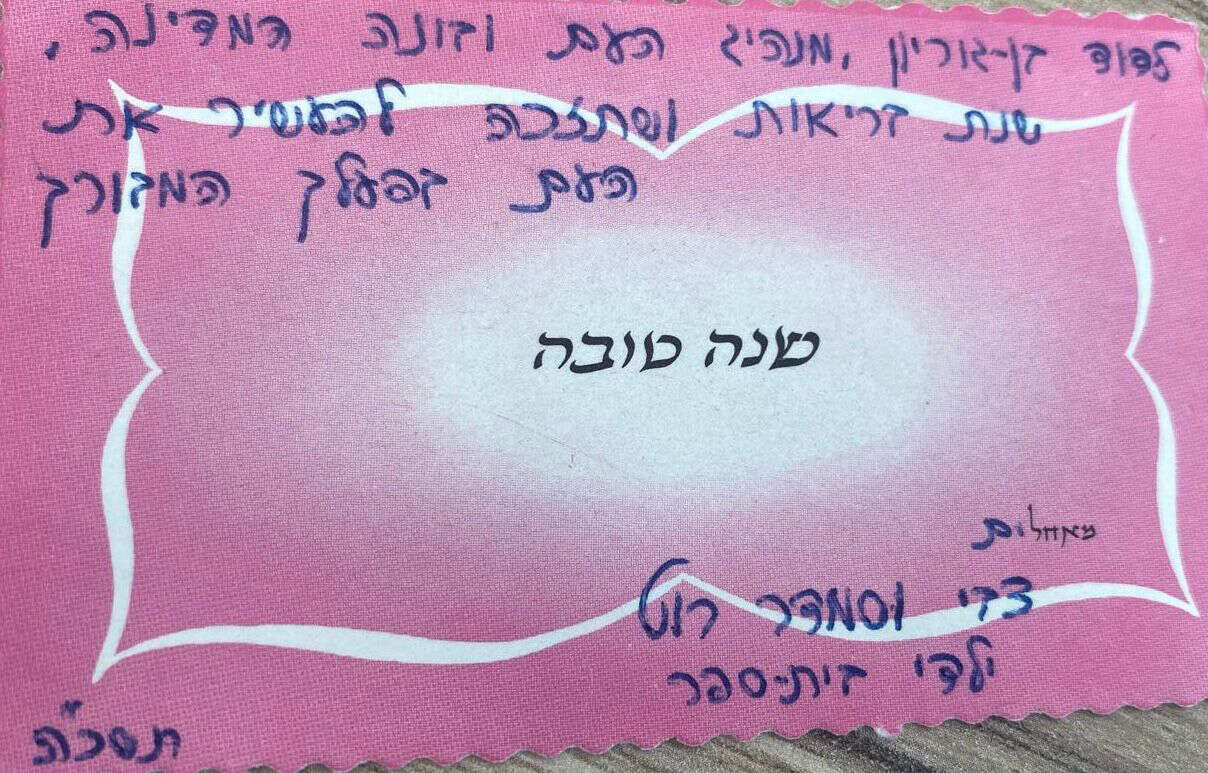 לדוד בן-גוריון, מנהיג העם ובונה המדינה,
שנת בריאות ושתזכה להעשיר את
העם בפעלך המבורך
שנה טובה
מאחלים
צבי וסמדר רוט
ילדי בית-ספר
תשכ"ה